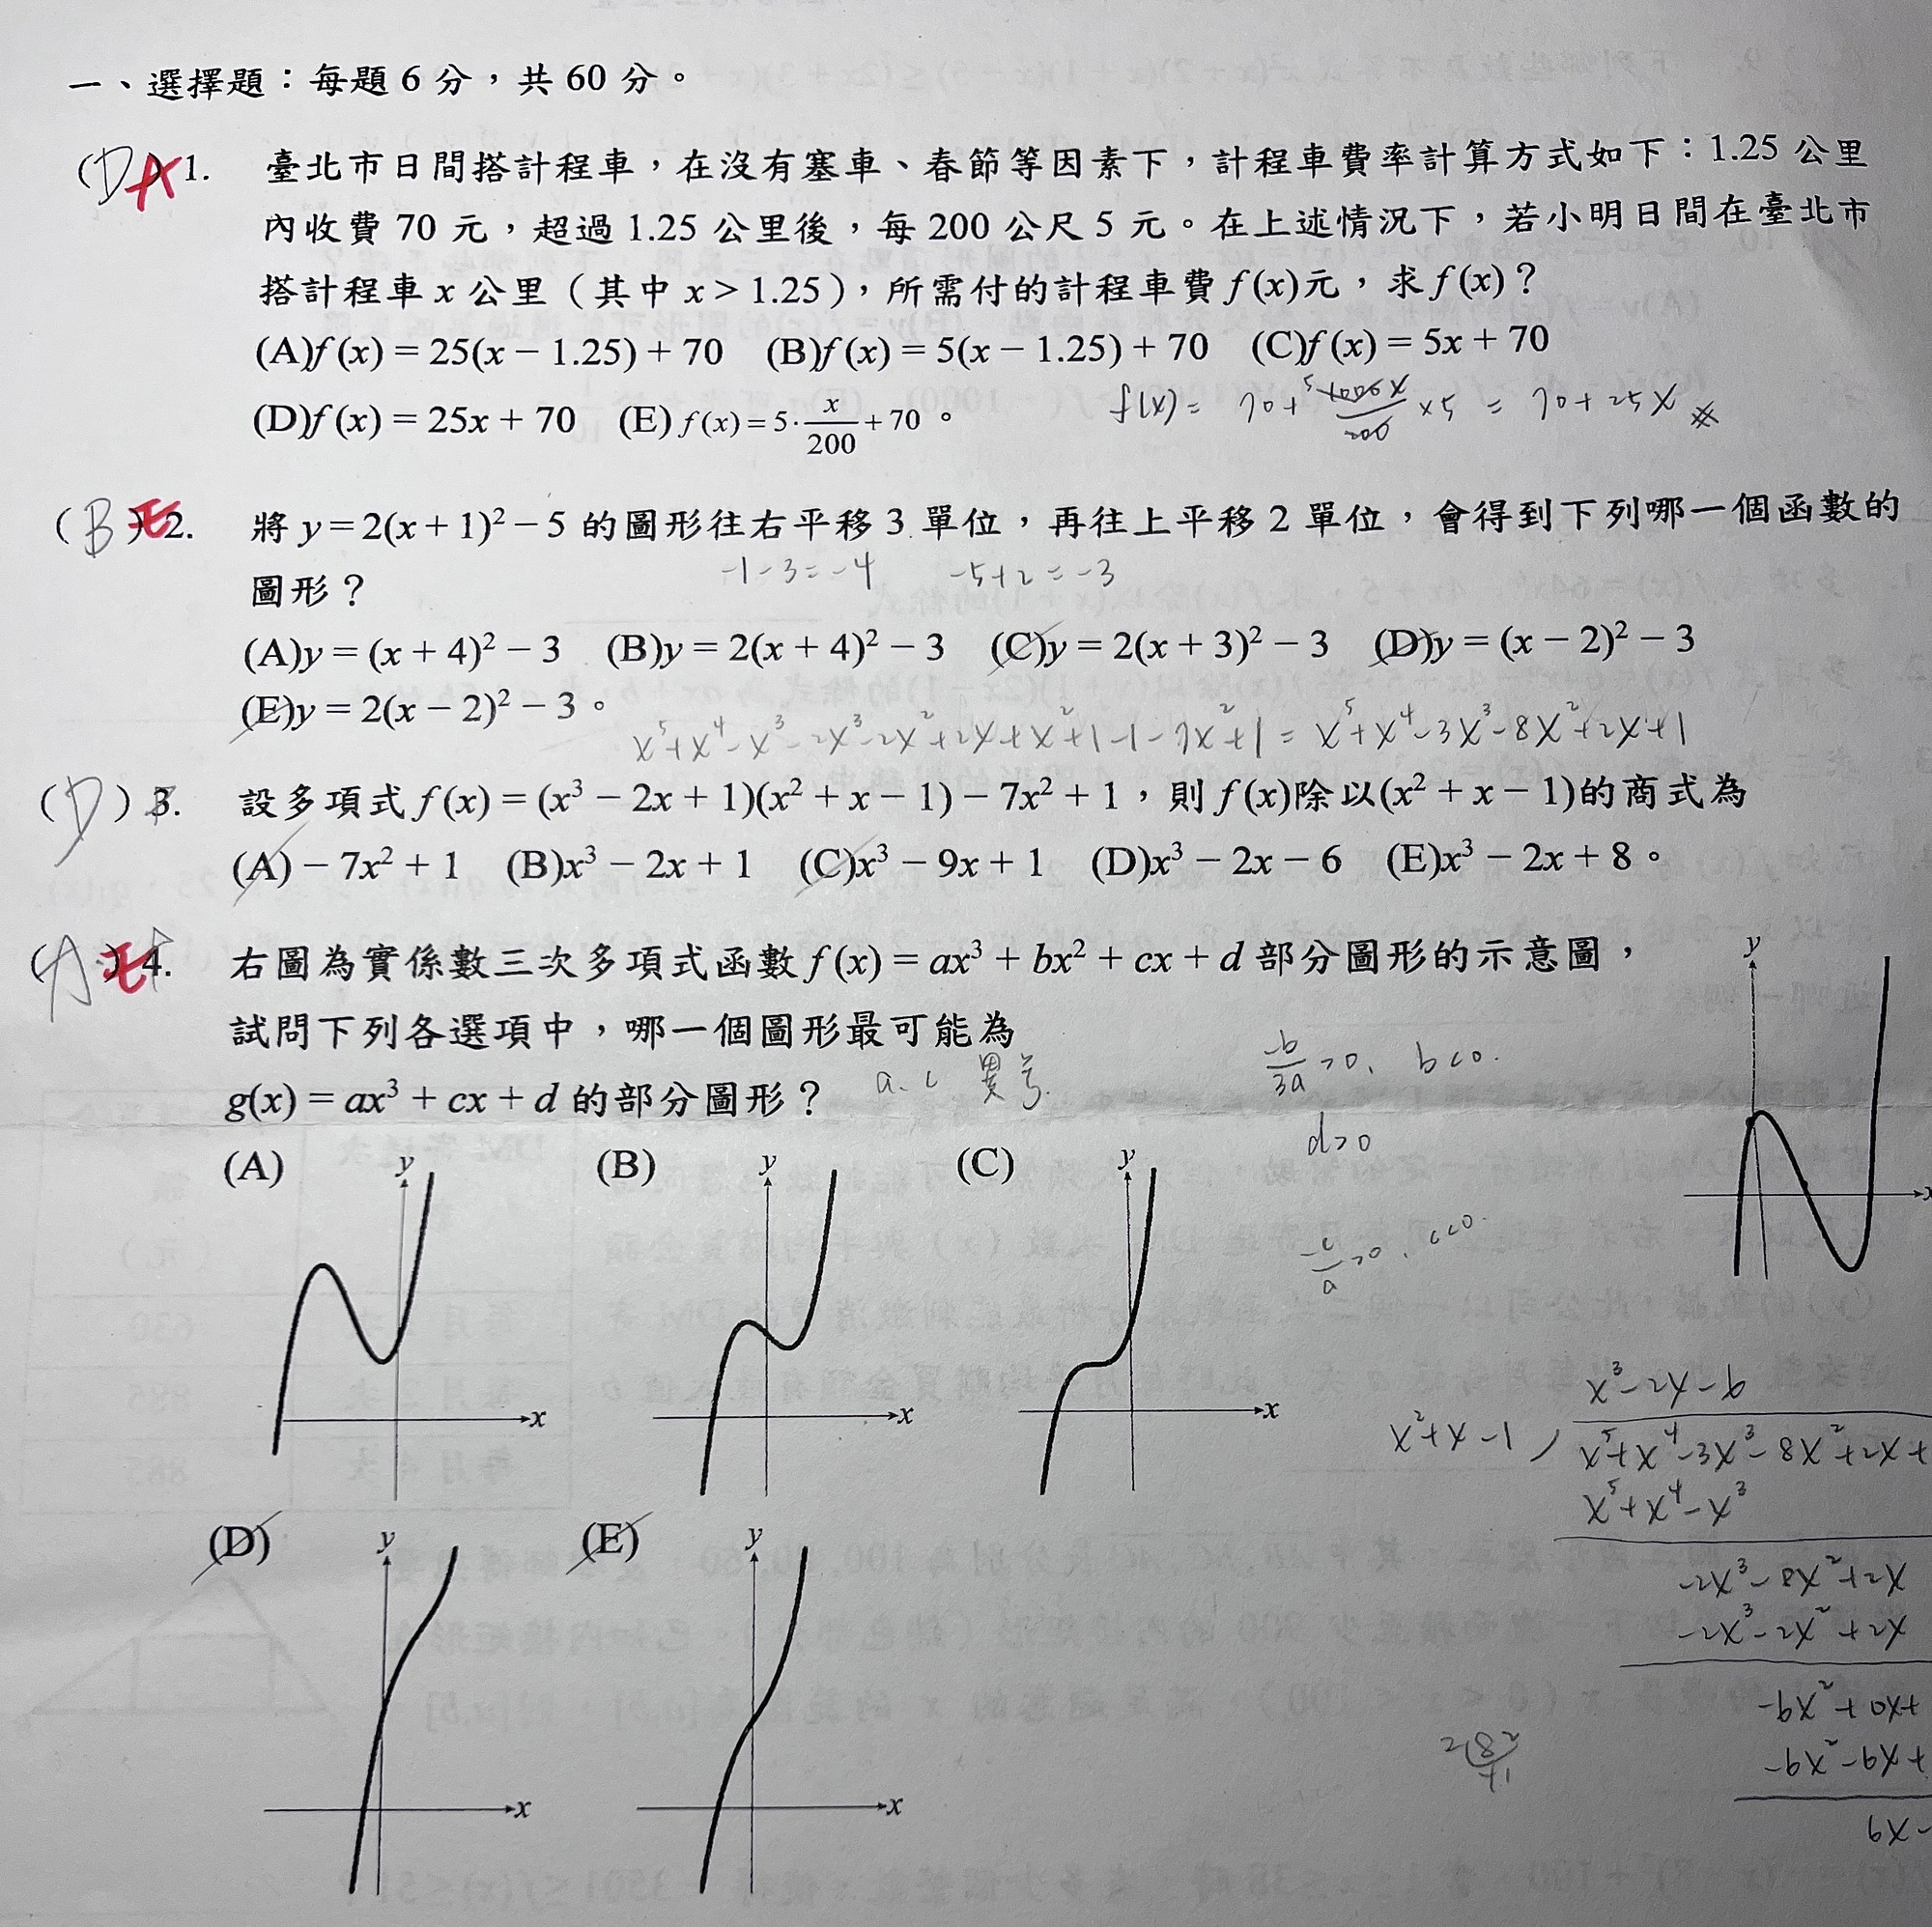 一、選擇題：每題 6 分，共 60 分。
(D) A 1. 臺北市日間搭計程車，在沒有塞車、春節等因素下，計程車費率計算方式如下：1.25 公里
內收費 70 元，超過 1.25 公里後，每 200 公尺 5 元。在上述情況下，若小明日間在臺北市
搭計程車 x 公里（其中 x > 1.25），所需付的計程車費 f(x)元，求 f(x)？
(A)f(x) = 25(x − 1.25) + 70 (B)f(x) = 5(x − 1.25) + 70 (C)f(x) = 5x + 70
(D)f(x) = 25x + 70 (E) f(x) = 5·x/200 + 70。
f(x) = 70 + 1000x/200 × 5 = 70 + 25x
(B) E 2. 將 y = 2(x + 1)² − 5 的圖形往右平移 3 單位，再往上平移 2 單位，會得到下列哪一個函數的
-1-3=-4 -5+2=-3
圖形？
(A)y = (x + 4)² − 3 (B)y = 2(x + 4)² − 3 (C)y = 2(x + 3)² − 3 (D)y = (x − 2)² − 3
(E)y = 2(x − 2)² − 3。
x⁵+x⁴-x³-2x³-2x²+2x+x²+x-1-7x²+1 = x⁵+x⁴-3x³-8x²+2x+1
(D) 3. 設多項式 f(x) = (x³ − 2x + 1)(x² + x − 1) − 7x² + 1，則 f(x)除以(x² + x − 1)的商式為
(A) − 7x² + 1 (B)x³ − 2x + 1 (C)x³ − 9x + 1 (D)x³ − 2x − 6 (E)x³ − 2x + 8。
(A) E 4. 右圖為實係數三次多項式函數 f(x) = ax³ + bx² + cx + d 部分圖形的示意圖，
試問下列各選項中，哪一個圖形最可能為
g(x) = ax³ + cx + d 的部分圖形？
a、c 異号
-b/3a >0、b<0.
d>0
-c/a >0、c<0.
y
x
(A) y x
(B) y x
(C) y x
(D) y x
(E) y x
x³-2x-6
x²+x-1
x⁵+x⁴-3x³-8x²+2x+
x⁵+x⁴-x³
-2x³-8x²+2x
-2x³-2x²+2x
-6x²+0x+
-6x²-6x+
6x-